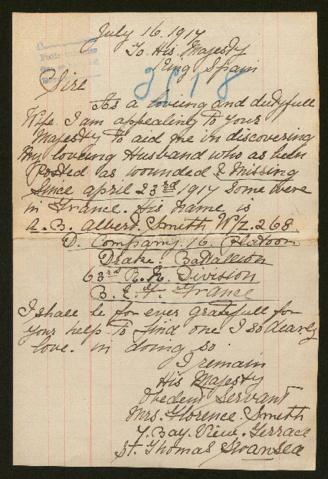 July 16. 1917
To His Majesty
King Spain
Sire
2918
As a loveing and dutyfull
Wife I am appealing to your
Majesty to aid me in discovering
my loveing Husband who as been
Posted as wounded & missing
Since april 23rd 1917 Some were
in France. His name is
A. B. Albert Smith W/Z. 268
D. Company. 16. Platoon
Drake. Battalion
63rd R. N. Division
B. E. F. France
I shall be for ever gratefull for
your help to find one I so dearly
love. in doing so
I remain
His Majesty
Obedent Servant
Mrs. Florence Smith
7. Bay. View. Terrace
St. Thomas Swansea